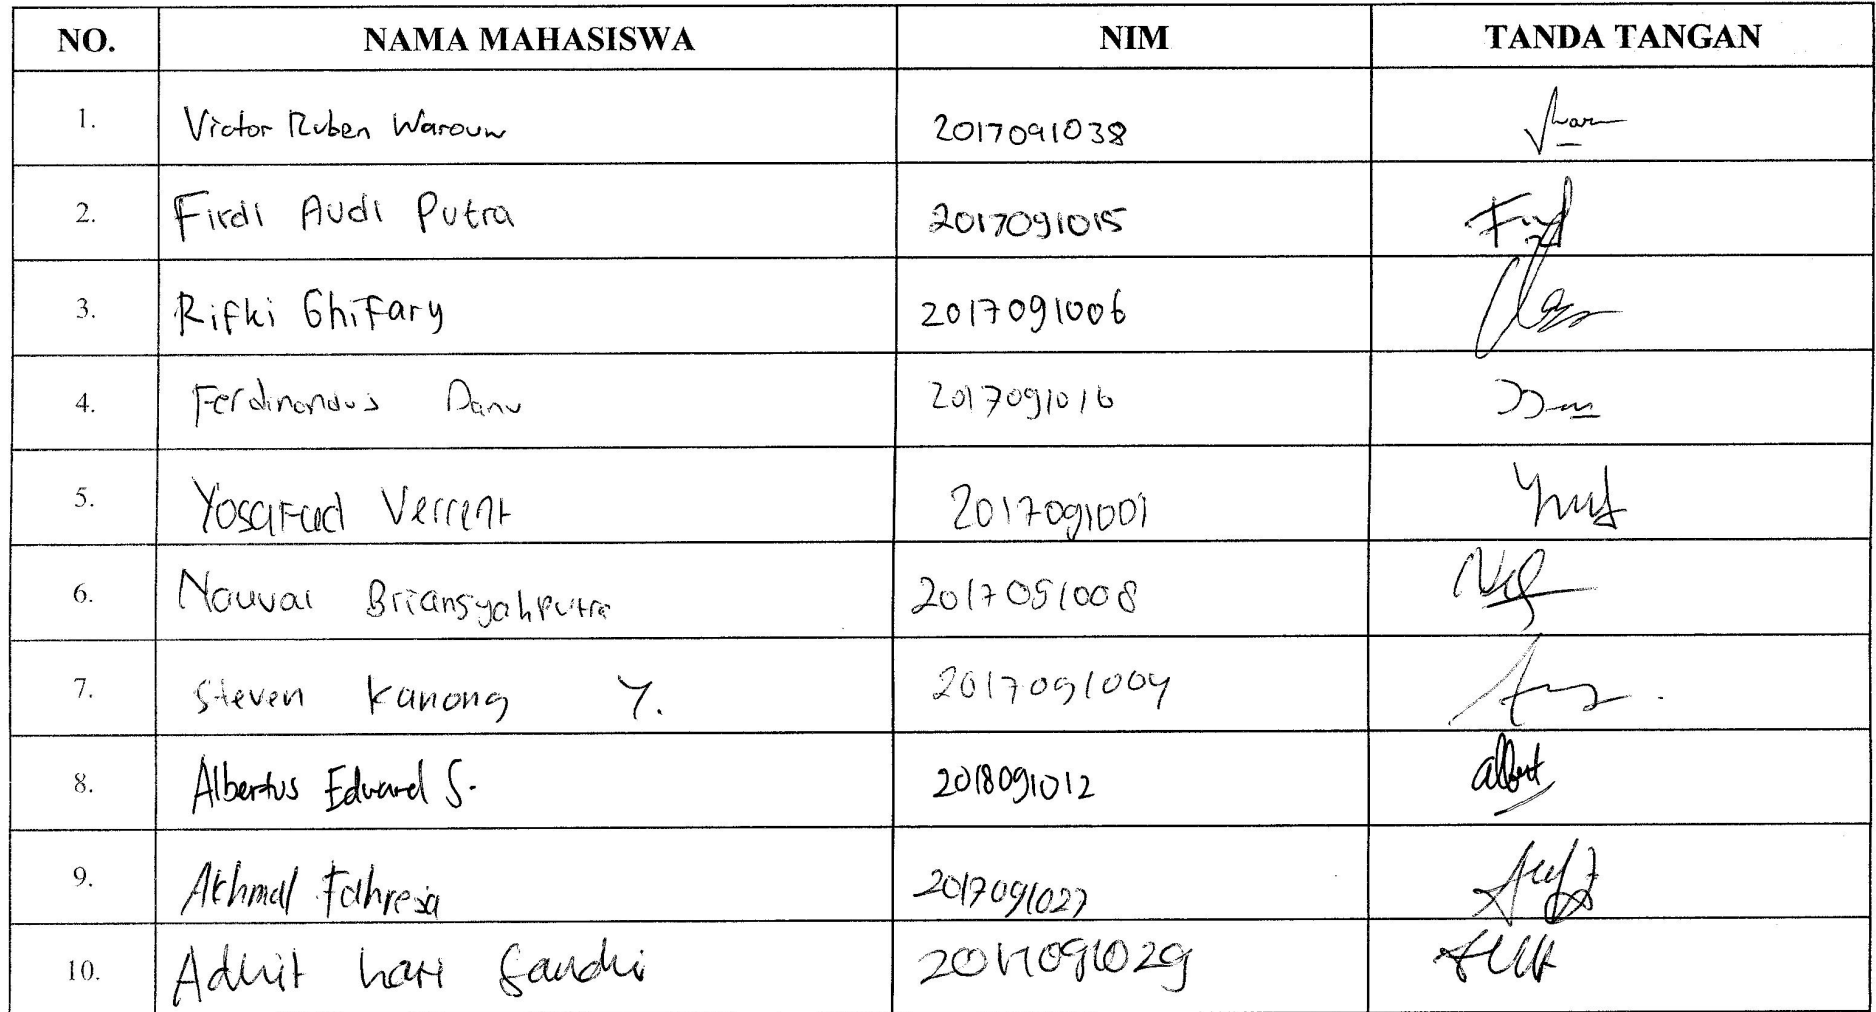 NO. NAMA MAHASISWA NIM TANDA TANGAN
1. Victor Ruben Warouw 2017091038
2. Firdi Audi Putra 2017091015 Fird
3. Rifki Ghifary 2017091006
4. Ferdinandus Danu 2017091016
5. Yosafad Verrent 2017091001
6. Nouval Briansyahputra 2017091008
7. Steven Kanong Y. 2017091004
8. Albertus Edward S. 2018091012 albert
9. Akhmal Fahreza 2017091027
10. Adhit hari Gandhi 2017091029